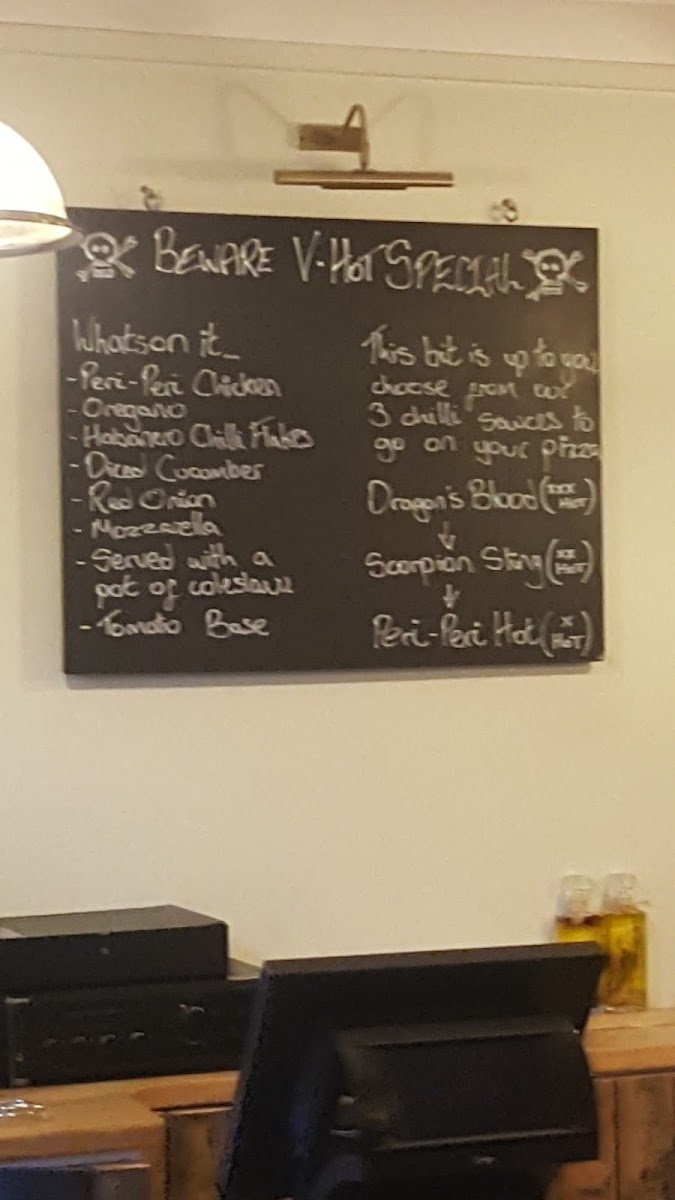 BEWARE V-HOT SPECIAL
Whatson it_
- Peri-Peri Chicken
- Oregano
- Habanero Chilli Flakes
- Diced Cucumber
- Red Onion
- Mozzarella
- Served with a
pot of coleslaw
- Tomato Base
This bit is up to you
choose from our
3 chilli sauces to
go on your pizza
Dragon's Blood (xxx HOT)
Scorpian Sting (xx HOT)
Peri-Peri Hot (x HOT)